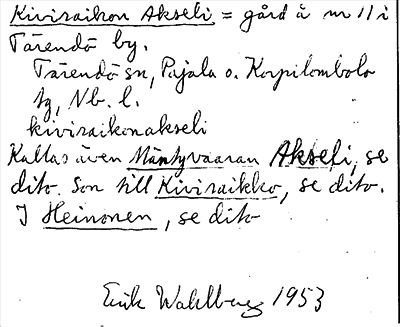 Kiviraikon Akseli = gård å nr 11 i
Tärendö by.
Tärendö sn, Pajala o. Korpilombolo
tg, Nb. l.
kiviraikonakseli
Kallas även Mäntyvaaran Akseli, se
dito. Son till Kiviraikko, se dito.
I Heinonen, se dito
Erik Wahlberg 1953